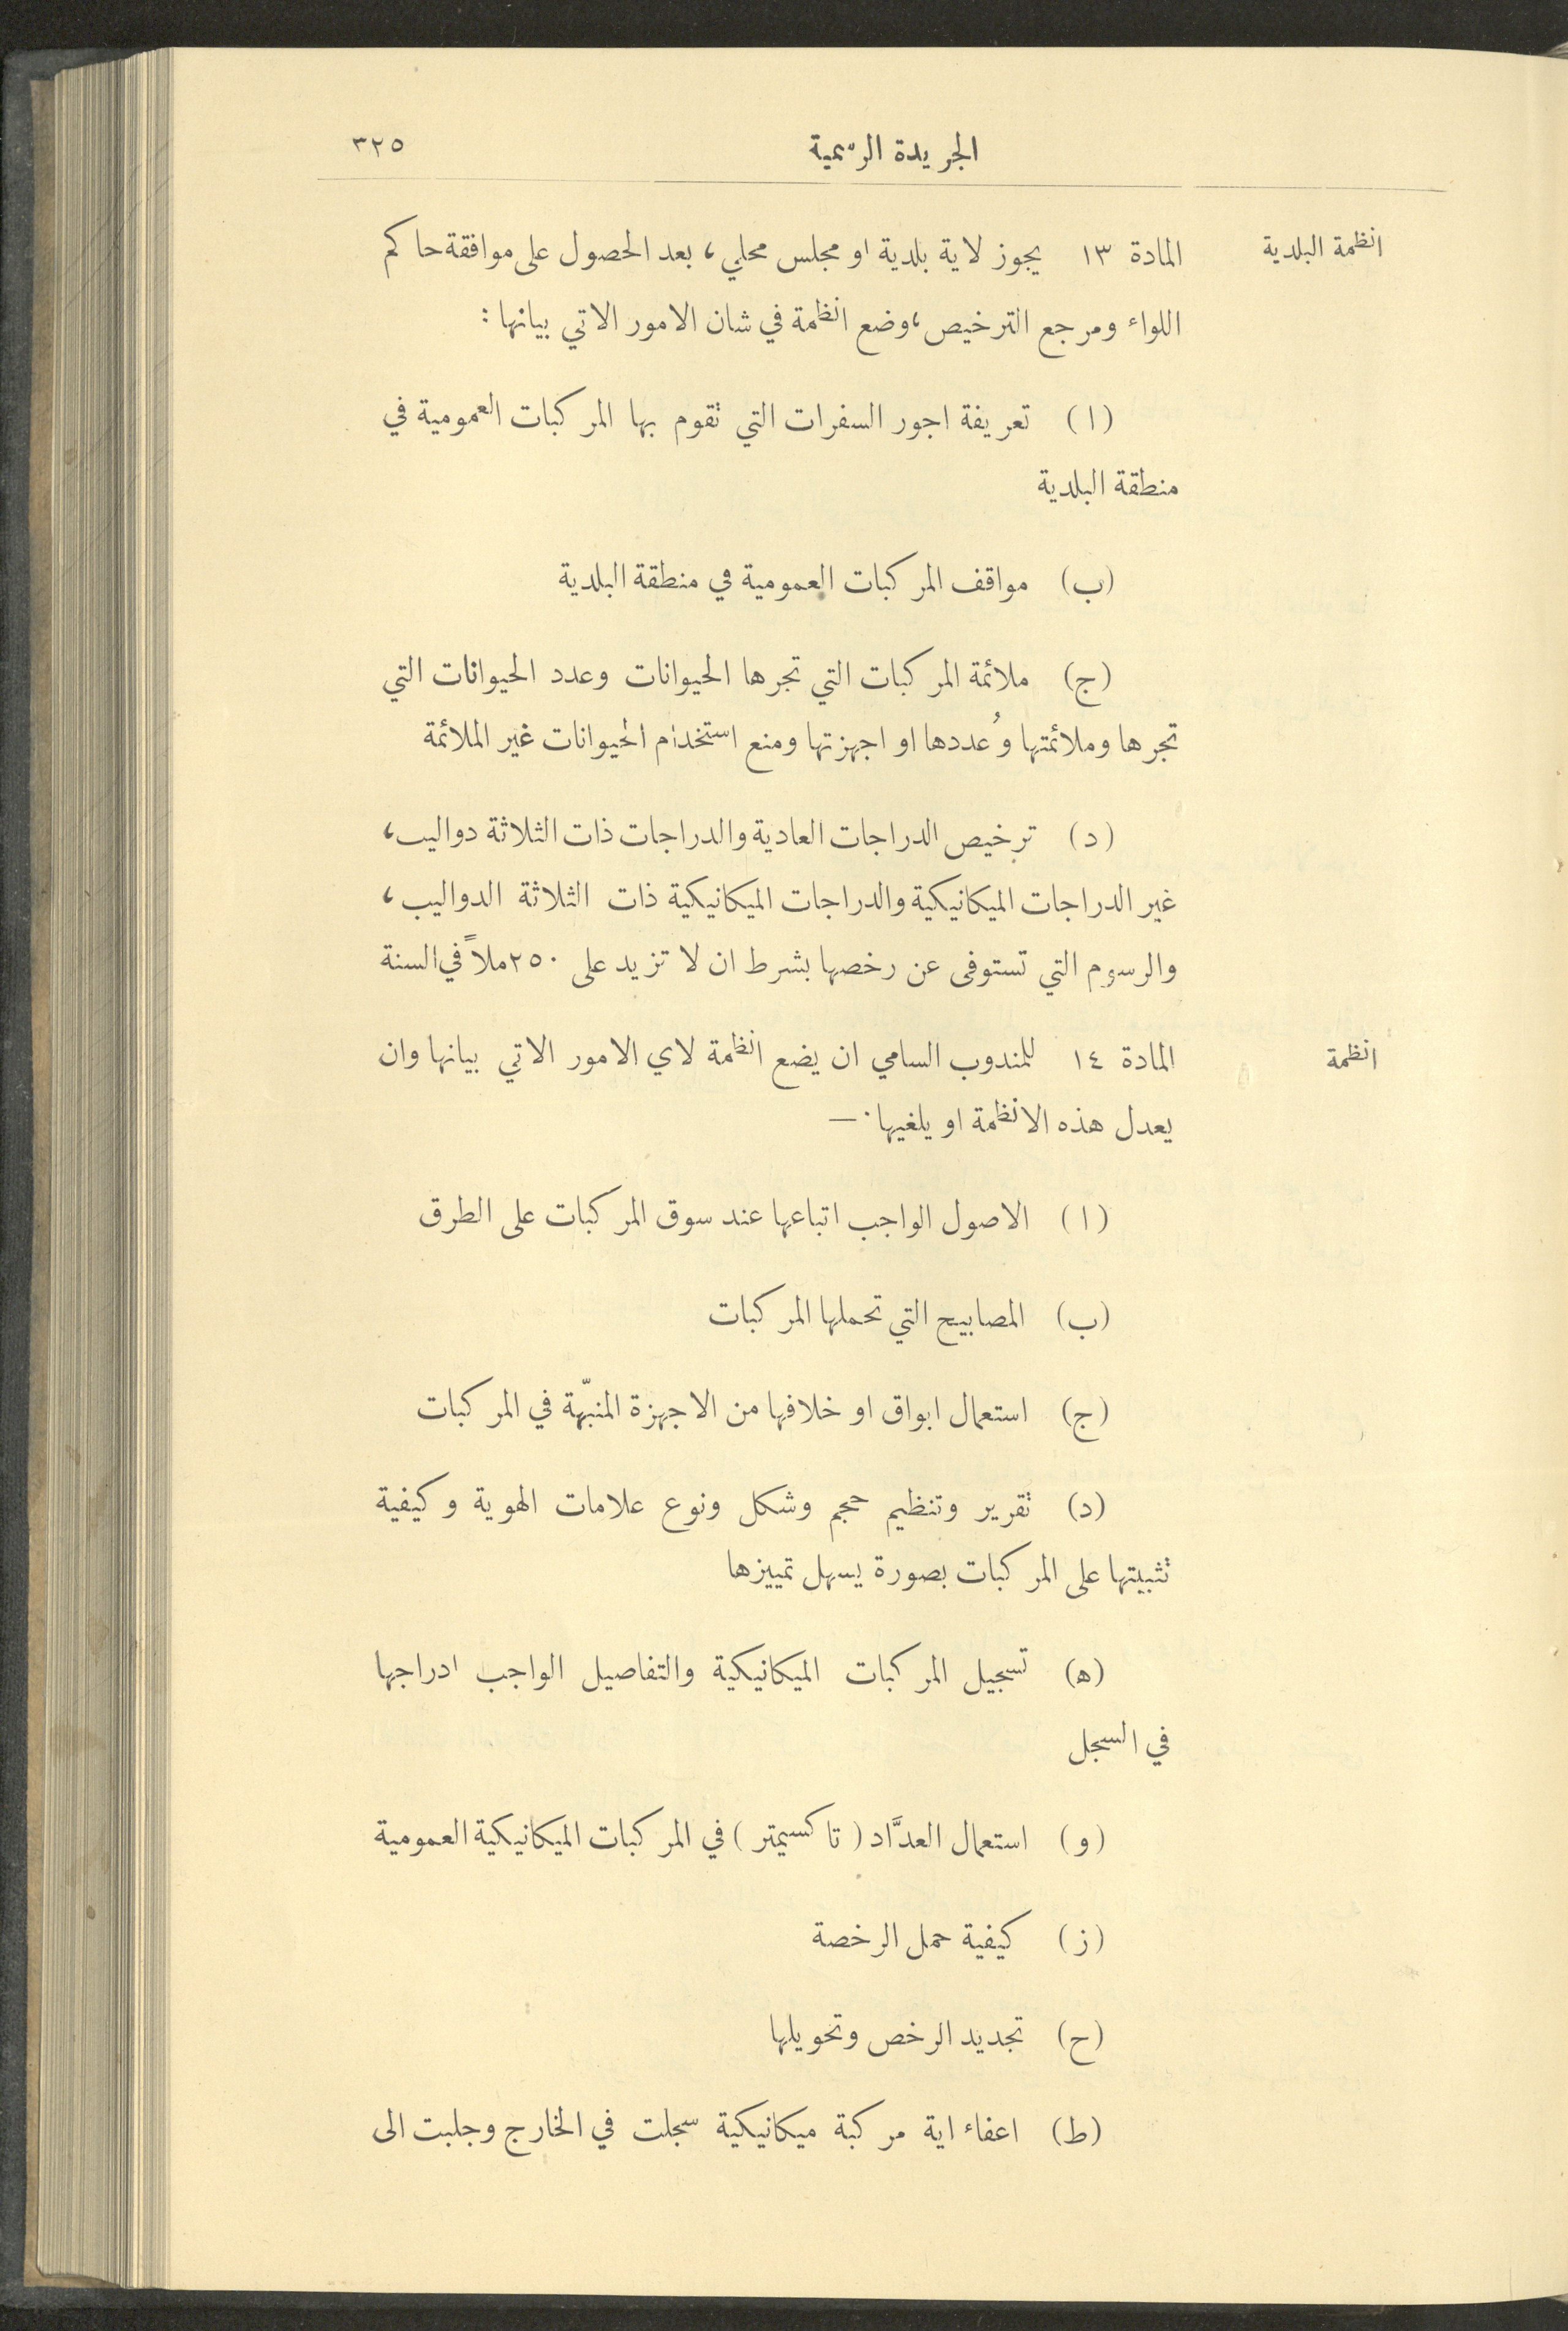 الجريدة الرسمية ٣٢٥
انظمة البلدية
المادة ١٣ يجوز لاية بلدية او مجلس محلي، بعد الحصول على موافقة حاكم
اللواء ومرجع الترخيص، وضع انظمة في شان الامور الاتي بيانها :
(ا) تعريفة اجور السفرات التي تقوم بها المركبات العمومية في
منطقة البلدية
(ب) مواقف المركبات العمومية في منطقة البلدية
(ج) ملائمة المركبات التي تجرها الحيوانات وعدد الحيوانات التي
تجرها وملائمتها وُعددها او اجهزتها ومنع استخدام الحيوانات غير الملائمة
(د) ترخيص الدراجات العادية والدراجات ذات الثلاثة دواليب،
غير الدراجات الميكانيكية والدراجات الميكانيكية ذات الثلاثة الدواليب،
والرسوم التي تستوفى عن رخصها بشرط ان لا تزيد على ٢٥٠ ملاً في السنة
انظمة
المادة ١٤ للمندوب السامي ان يضع انظمة لاي الامور الاتي بيانها وان
يعدل هذه الانظمة او يلغيها ٠—
(ا) الاصول الواجب اتباعها عند سوق المركبات على الطرق
(ب) المصابيح التي تحملها المركبات
(ج) استعمال ابواق او خلافها من الاجهزة المنبّهة في المركبات
(د) تقرير وتنظيم حجم وشكل ونوع علامات الهوية وكيفية
تثبيتها على المركبات بصورة يسهل تمييزها
(ه) تسجيل المركبات الميكانيكية والتفاصيل الواجب ادراجها
في السجل
(و) استعمال العدَّاد (تاكسيمتر) في المركبات الميكانيكية العمومية
(ز) كيفية حمل الرخصة
(ح) تجديد الرخص وتحويلها
(ط) اعفاء اية مركبة ميكانيكية سجلت في الخارج وجلبت الى